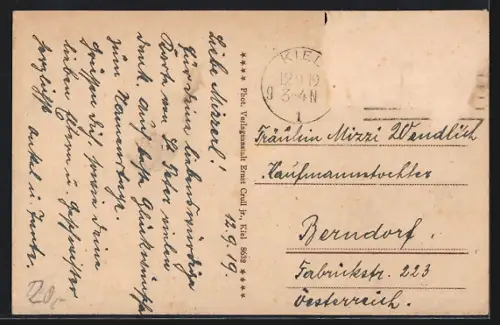 12.9.19.
Liebe Mizzerl!
Für Deine liebenswürdige
Karte von St. Peter vielen
Dank. Auch beste Glückwünsche
zum Namenstage.
Grüßen Dich, sowie Deine
lieben Eltern u. Geschwister
herzlichst
Onkel u. Tante.
**** Phot. Verlagsanstalt Ernst Crull jr., Kiel 8632 ****
KIEL
12.9.19
3-4N
1
Fräulein Mizzi Wendlich
Kaufmannstochter
Berndorf.
Fabrikstr. 223
Oesterreich.